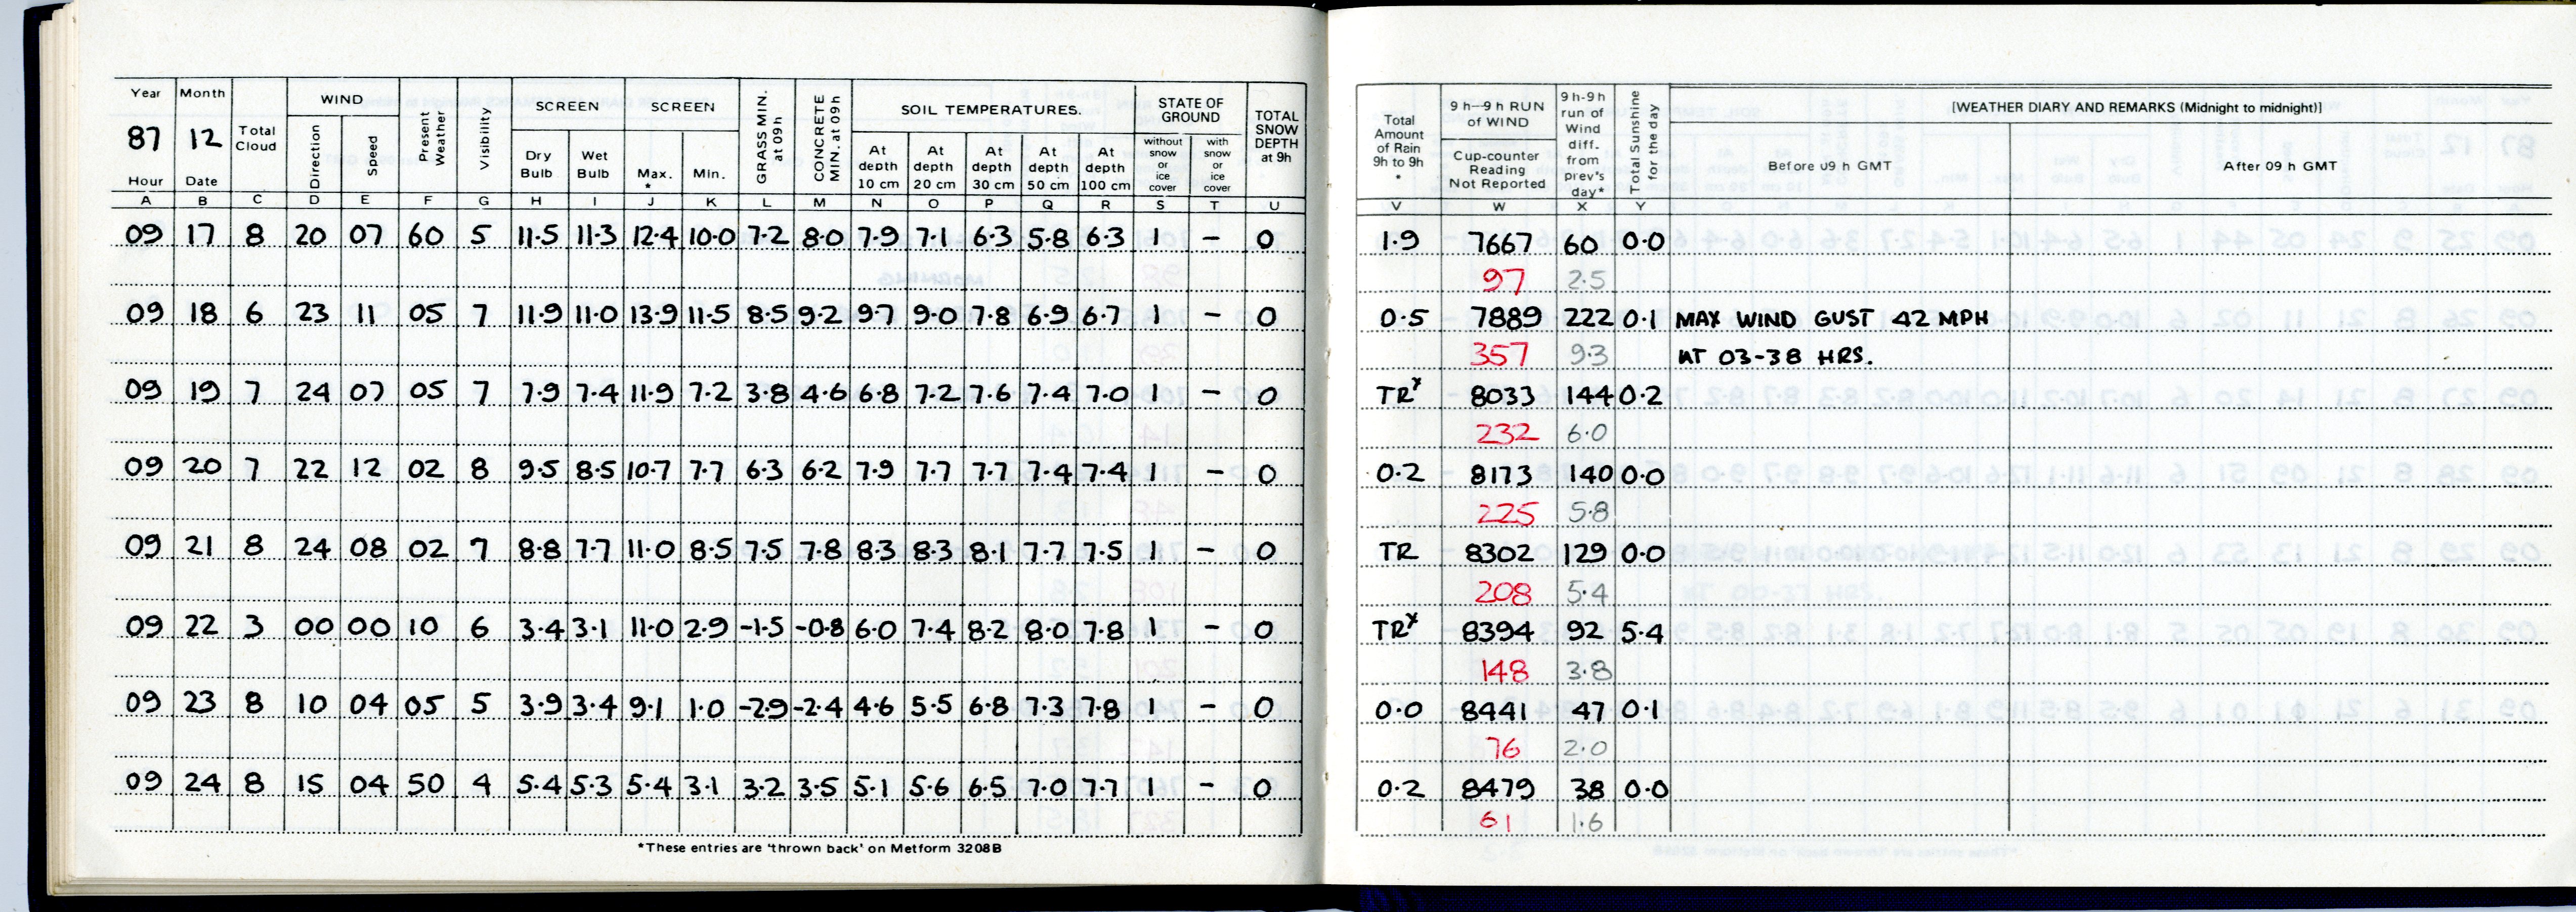 Year Month Total Cloud WIND Present Weather Visibility SCREEN SCREEN GRASS MIN. at 09h CONCRETE MIN. at 09h SOIL TEMPERATURES. STATE OF GROUND TOTAL SNOW DEPTH at 9h
87 12 Direction Speed Dry Bulb Wet Bulb Max. * Min. At depth 10 cm At depth 20 cm At depth 30 cm At depth 50 cm At depth 100 cm without snow or ice cover with snow or ice cover
Hour Date
A B C D E F G H I J K L M N O P Q R S T U
09 17 8 20 07 60 5 11.5 11.3 12.4 10.0 7.2 8.0 7.9 7.1 6.3 5.8 6.3 1 – 0
09 18 6 23 11 05 7 11.9 11.0 13.9 11.5 8.5 9.2 9.7 9.0 7.8 6.9 6.7 1 – 0
09 19 7 24 07 05 7 7.9 7.4 11.9 7.2 3.8 4.6 6.8 7.2 7.6 7.4 7.0 1 – 0
09 20 7 22 12 02 8 9.5 8.5 10.7 7.7 6.3 6.2 7.9 7.7 7.7 7.4 7.4 1 – 0
09 21 8 24 08 02 7 8.8 7.7 11.0 8.5 7.5 7.8 8.3 8.3 8.1 7.7 7.5 1 – 0
09 22 3 00 00 10 6 3.4 3.1 11.0 2.9 -1.5 -0.8 6.0 7.4 8.2 8.0 7.8 1 – 0
09 23 8 10 04 05 5 3.9 3.4 9.1 1.0 -2.9 -2.4 4.6 5.5 6.8 7.3 7.8 1 – 0
09 24 8 15 04 50 4 5.4 5.3 5.4 3.1 3.2 3.5 5.1 5.6 6.5 7.0 7.7 1 – 0
*These entries are 'thrown back' on Metform 3208B
Total Amount of Rain 9h to 9h * 9 h—9 h RUN of WIND Cup-counter Reading Not Reported 9 h-9 h run of Wind diff. from prev's day* Total Sunshine for the day [WEATHER DIARY AND REMARKS (Midnight to midnight)]
Before 09 h GMT After 09 h GMT
V W X Y
1.9 7667 60 0.0
97 2.5
0.5 7889 222 0.1 MAX WIND GUST 42 MPH
357 9.3 AT 03-38 HRS.
TRx 8033 144 0.2
232 6.0
0.2 8173 140 0.0
225 5.8
TR 8302 129 0.0
208 5.4
TRx 8394 92 5.4
148 3.8
0.0 8441 47 0.1
76 2.0
0.2 8479 38 0.0
61 1.6